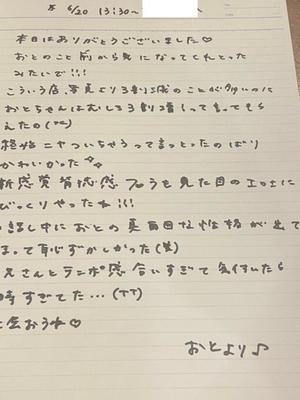 6/20 13:30~
本日はありがとうございました♡
おとのこと前から気になってくれとった
みたいで!!!
こういう店、写真より3割減のことが多いのに
おとちゃんはむしろ3割増しって言ってもら
えたの
ニヤついちゃうって言っとったのばり
かわいかった
新感覚背徳感 フラも見た目のエロさに
びっくりやったわ!!!
話し中におとの真面目な性格が出て
って恥ずかしかった(笑)
えさんとテンポ感合いすぎて気付いたら
時すぎてた…(TT)
会おうね♡
おとより♪